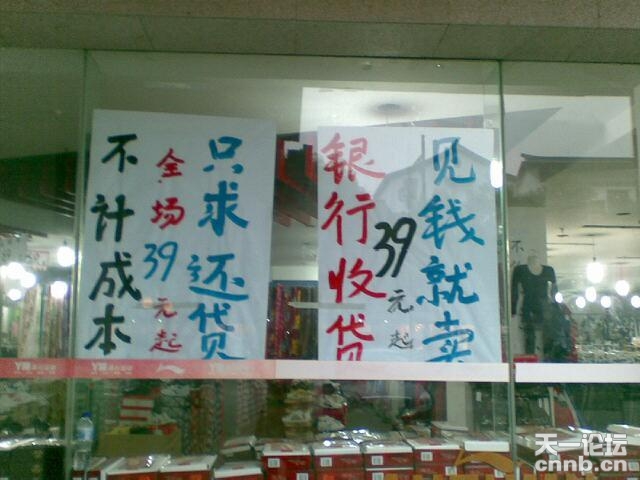 只求还贷
全场39元起
不计成本
见钱就卖
39元起
银行收贷
天一论坛
cnnb.cn